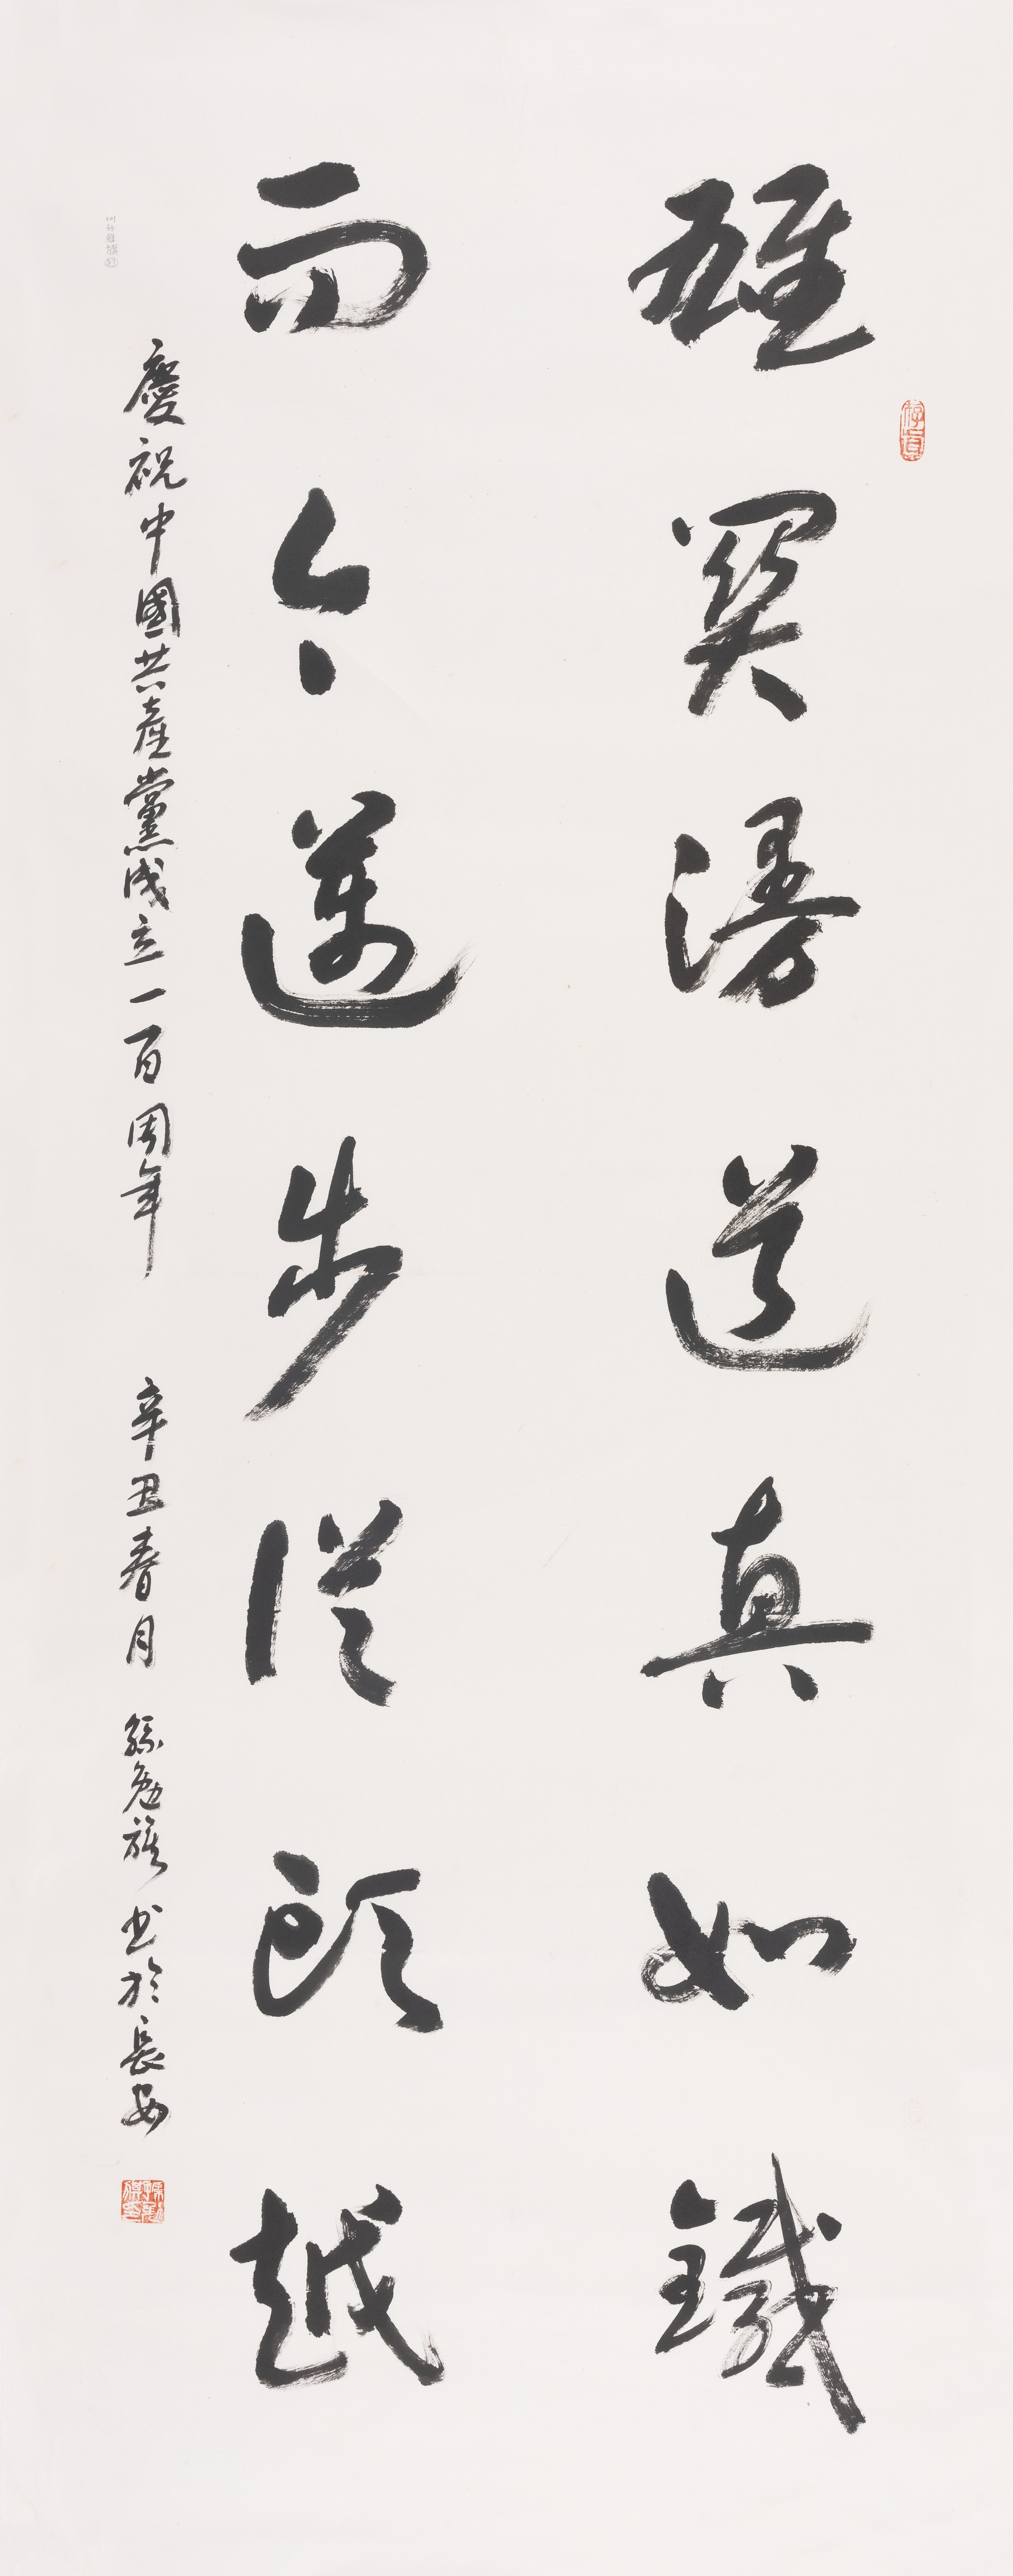 雄關漫道真如鐵
而今邁步從頭越
慶祝中國共產黨成立一百周年 辛丑春月 書於長安